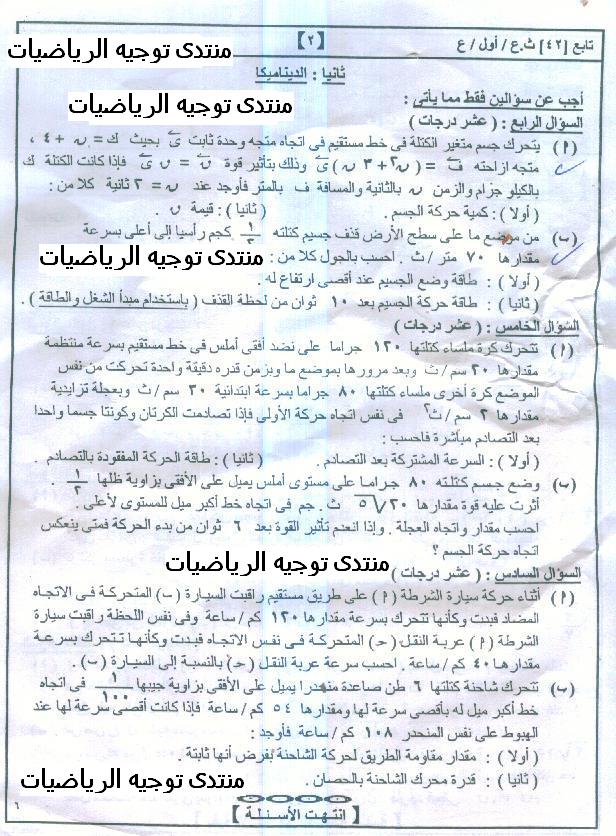 تابع [٤٢] ث.ع / أول / ع
[٢]
منتدى توجيه الرياضيات
ثانيا : الديناميكا
منتدى توجيه الرياضيات
أجب عن سؤالين فقط مما يأتى :
السؤال الرابع : ( عشر درجات )
(أ) يتحرك جسم متغير الكتلة فى خط مستقيم فى اتجاه متجه وحدة ثابت ى بحيث ك = ن + ٤ ،
متجه ازاحته ف = ( ن٢ + ٣ ن ) ى وذلك بتأثير قوة ى فإذا كانت الكتلة ك
بالكيلو جرام والزمن ن بالثانية والمسافة ف بالمتر فأوجد عند ن = ٢ ثانية كلا من :
( أولا ) : كمية حركة الجسم . ( ثانيا ) : قيمة
(ب) من موضع ما على سطح الأرض قذف جسيم كتلته كجم رأسيا إلى أعلى بسرعة
مقدارها ٧٠ متر / ث . احسب بالجول كلا من :
منتدى توجيه الرياضيات
( أولا ) : طاقة وضع الجسيم عند أقصى ارتفاع له .
( ثانيا ) : طاقة حركة الجسيم بعد ١٠ ثوان من لحظة القذف ( باستخدام مبدأ الشغل والطاقة ) .
السؤال الخامس : ( عشر درجات )
(أ) تتحرك كرة ملساء كتلتها ١٢٠ جراما على نضد أفقى أملس فى خط مستقيم بسرعة منتظمة
مقدارها ٢٠ سم / ث وبعد مرورها بموضع ما وبزمن قدره دقيقة واحدة تحركت من نفس
الموضع كرة أخرى ملساء كتلتها ٨٠ جراما بسرعة ابتدائية ٣٠ سم / ث وبعجلة تزايدية
مقدارها ٢ سم / ث٢ فى نفس اتجاه حركة الأولى فإذا تصادمت الكرتان وكونتا جسما واحدا
بعد التصادم مباشرة فاحسب :
( أولا ) : السرعة المشتركة بعد التصادم . ( ثانيا ) : طاقة الحركة المفقودة بالتصادم .
(ب) وضع جسم كتلته ٨٠ جراما على مستوى أملس يميل على الأفقى بزاوية ظلها ١/٢
أثرت عليه قوة مقدارها ٢٠ √٥ ث . جم فى اتجاه خط أكبر ميل للمستوى لأعلى .
احسب مقدار واتجاه العجلة . وإذا انعدم تأثير القوة بعد ٦ ثوان من بدء الحركة فمتى ينعكس
اتجاه حركة الجسم ؟
منتدى توجيه الرياضيات
السؤال السادس : ( عشر درجات )
(أ) أثناء حركة سيارة الشرطة (أ) على طريق مستقيم راقبت السيارة (ب) المتحركة فى الاتجاه
المضاد فبدت وكأنها تتحرك بسرعة مقدارها ١٢٠ كم / ساعة وفى نفس اللحظة راقبت سيارة
الشرطة (أ) عربة النقل (جـ) المتحركة فى نفس الاتجاه فبدت وكأنها تتحرك بسرعة
مقدارها ٤٠ كم / ساعة . احسب سرعة عربة النقل (جـ) بالنسبة إلى السيارة (ب) .
(ب) تتحرك شاحنة كتلتها ٦ طن صاعدة منحدرا يميل على الأفقى بزاوية جيبها ١/١٠٠ فى اتجاه
خط أكبر ميل له بأقصى سرعة لها ومقدارها ٥٤ كم / ساعة فإذا كانت أقصى سرعة لها عند
الهبوط على نفس المنحدر ١٠٨ كم / ساعة فأوجد :
( أولا ) : مقدار مقاومة الطريق لحركة الشاحنة بفرض أنها ثابتة .
( ثانيا ) : قدرة محرك الشاحنة بالحصان .
منتدى توجيه الرياضيات
[ انتهت الأسئلة ]